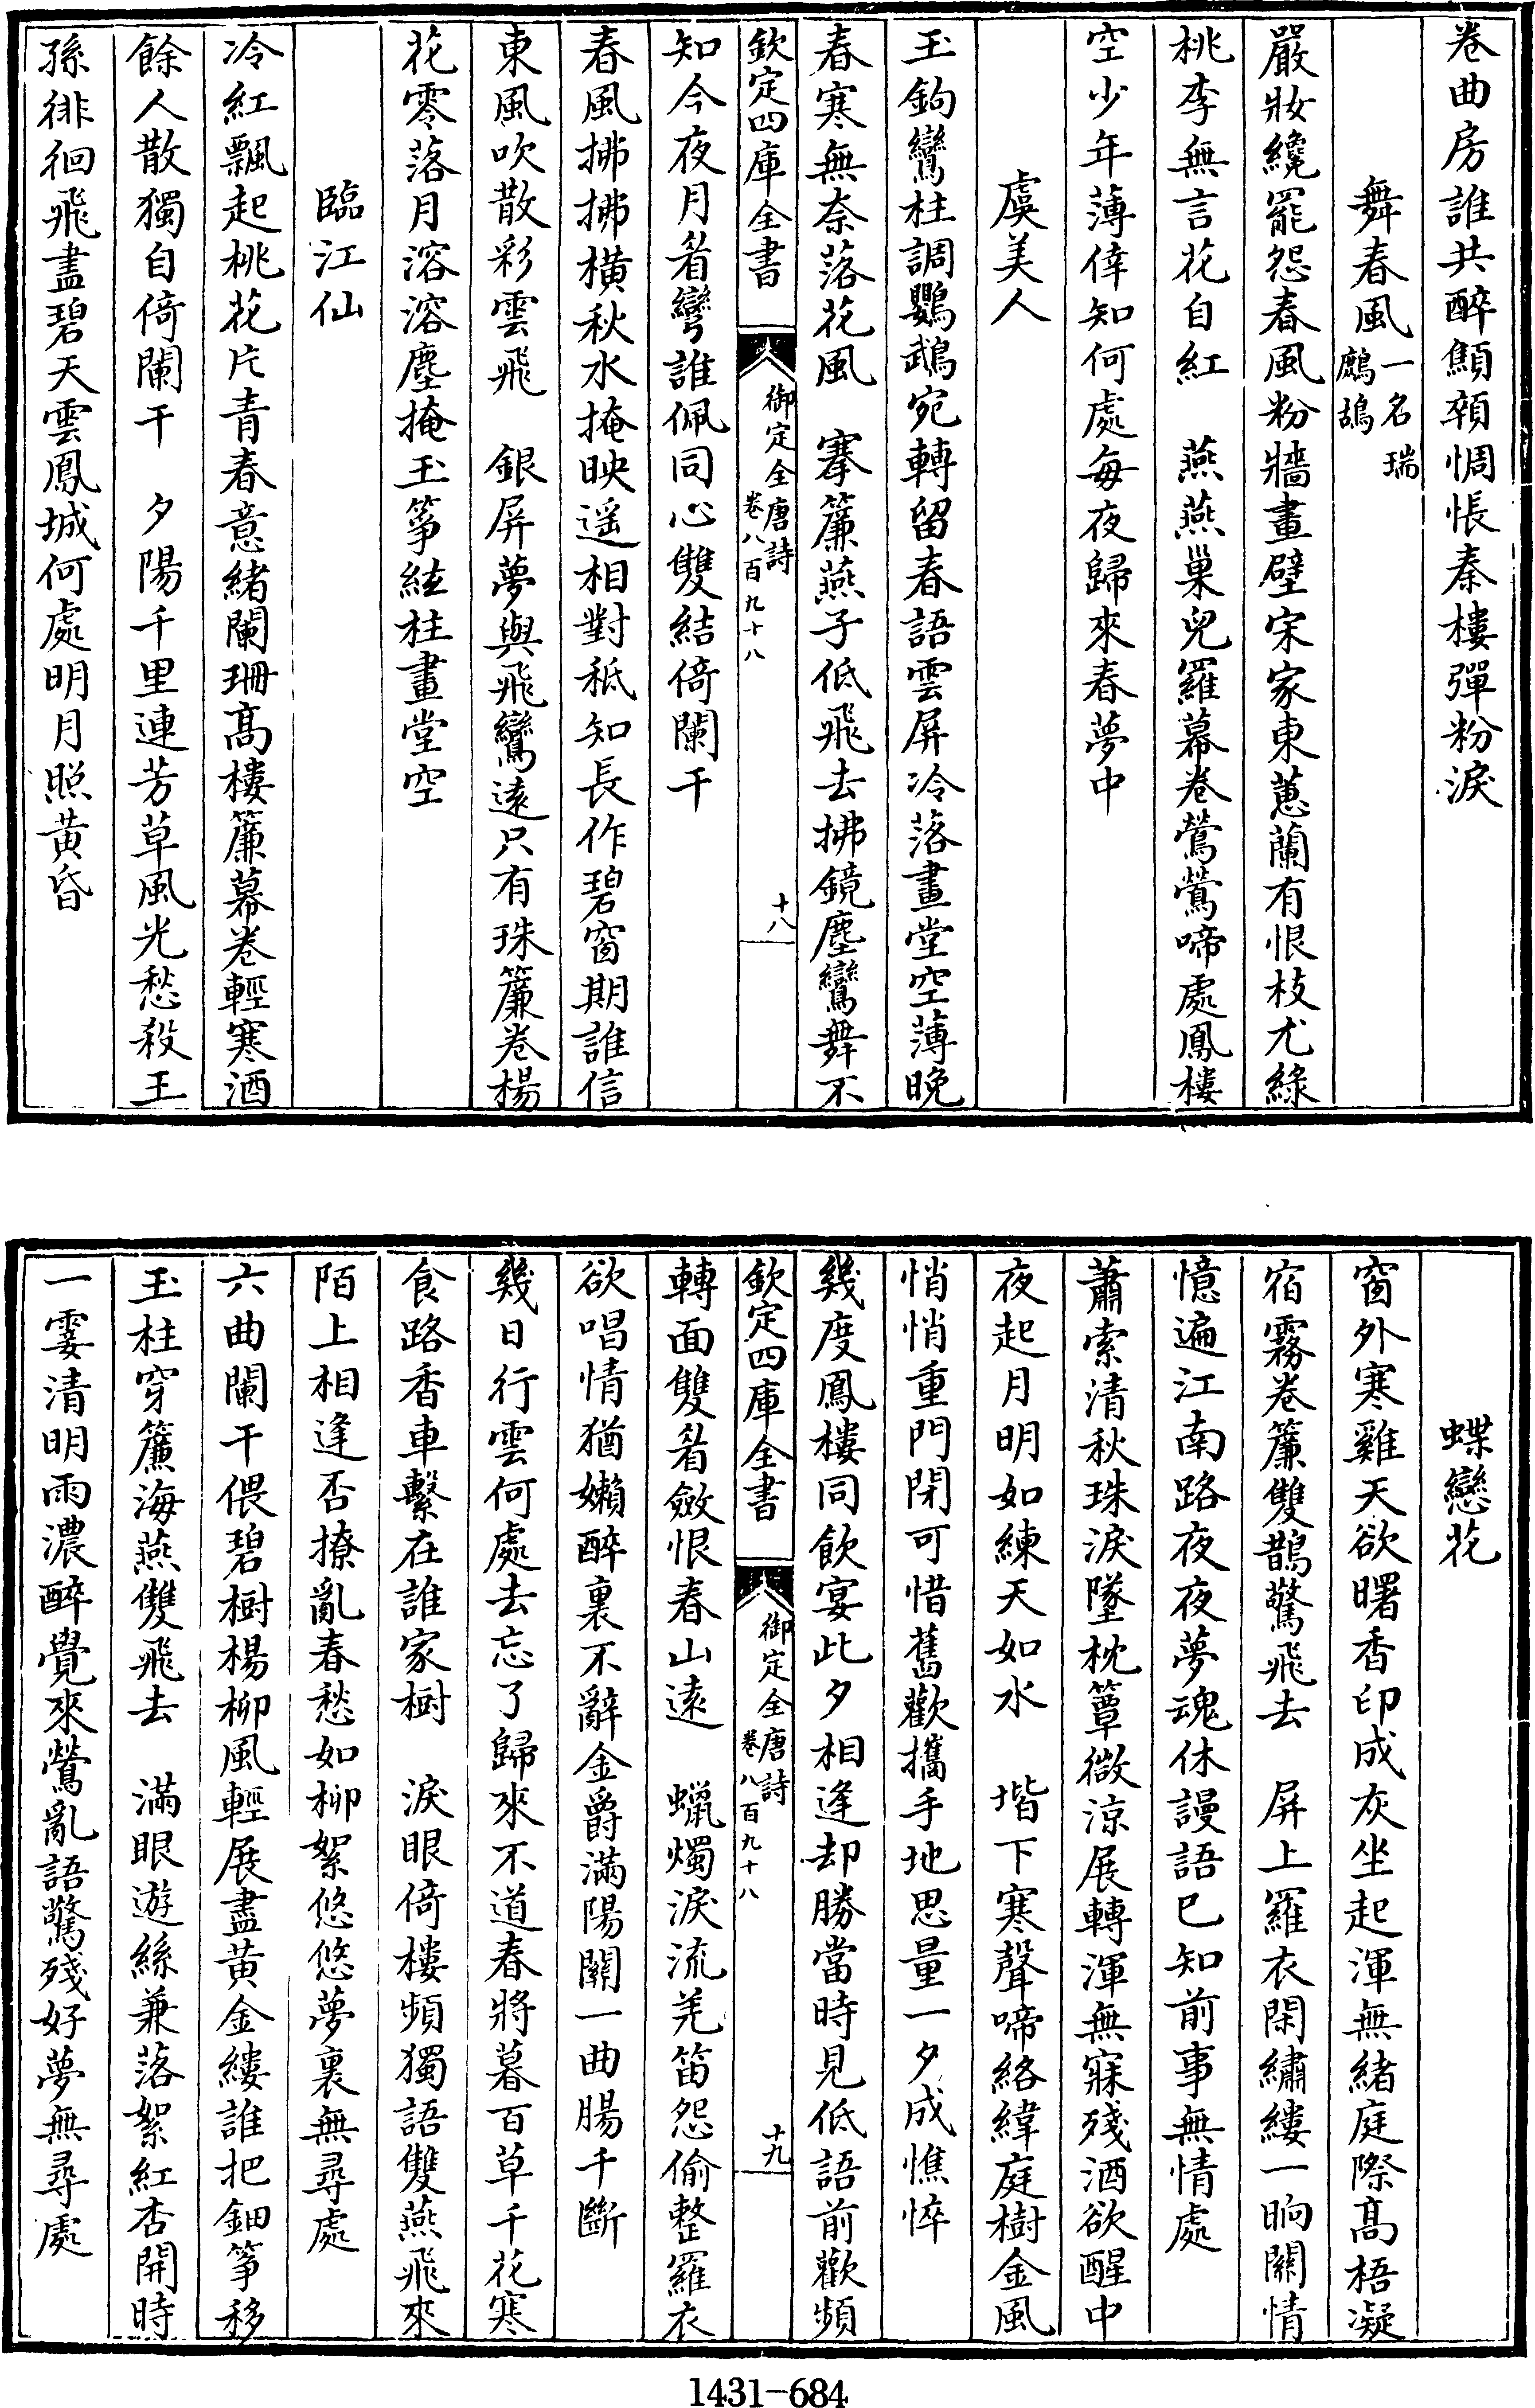 卷曲房誰共醉顦顇惆悵秦樓彈粉淚
舞春風一名瑞鷓鴣
嚴妝纔罷怨春風粉牆畫壁宋家東蕙蘭有恨枝尤綠
桃李無言花自紅　燕燕巢兒羅幕卷鶯鶯啼處鳳樓
空少年薄倖知何處每夜歸來春夢中
虞美人
玉鉤鸞柱調鸚鵡宛轉留春語雲屏冷落畫堂空薄晚
春寒無奈落花風　搴簾燕子低飛去拂鏡塵鸞舞不
欽定四庫全書　御定全唐詩　卷八百九十八　十八
知今夜月眉彎誰佩同心雙結倚闌干
春風拂拂橫秋水掩映遥相對秪知長作碧窗期誰信
東風吹散彩雲飛　銀屏夢與飛鸞遠只有珠簾卷楊
花零落月溶溶塵掩玉箏絃柱畫堂空
臨江仙
冷紅飄起桃花片青春意緒闌珊髙樓簾幕卷輕寒酒
餘人散獨自倚闌干　夕陽千里連芳草風光愁殺王
孫徘徊飛盡碧天雲鳳城何處明月照黄昏
蝶戀花
窗外寒雞天欲曙香印成灰坐起渾無緒庭際髙梧凝
宿霧卷簾雙鵲驚飛去　屏上羅衣閑繡縷一晌關情
憶遍江南路夜夜夢魂休謾語已知前事無情處
蕭索清秋珠淚墜枕簟微涼展轉渾無寐殘酒欲醒中
夜起月明如練天如水　堦下寒聲啼絡緯庭樹金風
悄悄重門閉可惜舊歡攜手地思量一夕成憔悴
幾度鳳樓同飲宴此夕相逢却勝當時見低語前歡頻
欽定四庫全書　御定全唐詩　卷八百九十八　十九
轉面雙眉斂恨春山遠　蠟燭淚流羌笛怨偷整羅衣
欲唱情猶嬾醉裏不辭金爵滿陽關一曲腸千斷
幾日行雲何處去忘了歸來不道春將暮百草千花寒
食路香車繫在誰家樹　淚眼倚樓頻獨語雙燕飛來
陌上相逢否撩亂春愁如柳絮悠悠夢裏無尋處
六曲闌干偎碧樹楊柳風輕展盡黄金縷誰把鈿箏移
玉柱穿簾海燕雙飛去　滿眼遊絲兼落絮紅杏開時
一霎清明雨濃醉覺來鶯亂語驚殘好夢無尋處
1431-684